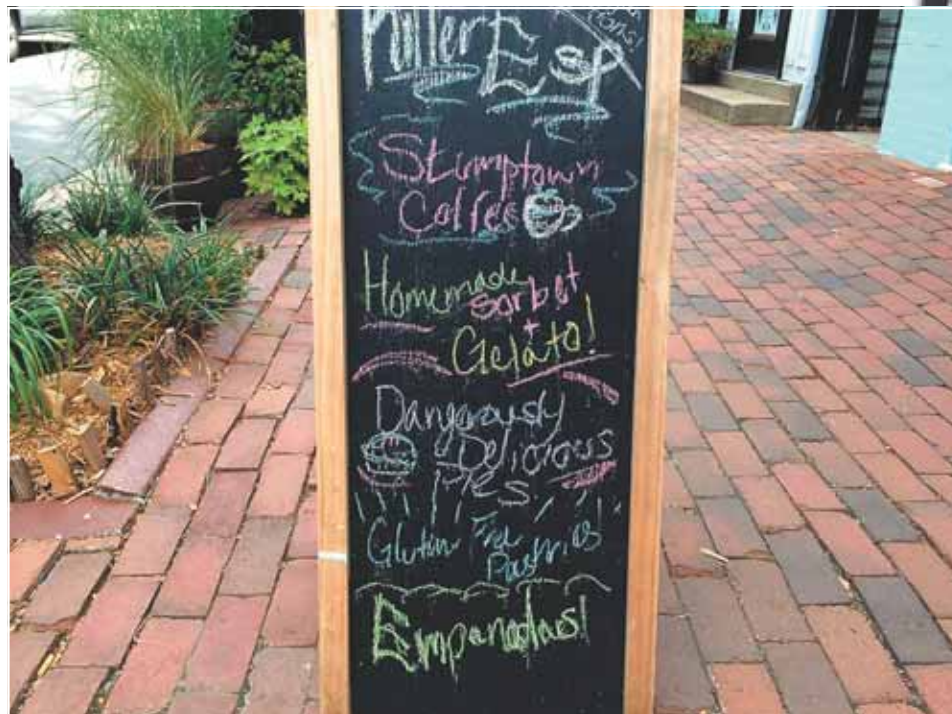 Killer ESP
Stumptown
Coffee
Homemade
Sorbet
+
Gelato!
Dangerously
Delicious
Pies
Glutin Free
Pastries!
Empanadas!